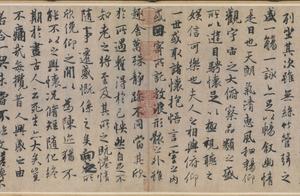 列坐其次雖無絲竹管弦之
盛一觴一詠亦足以暢叙幽情
是日也天朗氣清惠風和暢仰
觀宇宙之大俯察品類之盛
所以遊目騁懷足以極視聽之
娛信可樂也夫人之相與俯仰
一世或取諸懷抱悟言一室之內
或因寄所託放浪形骸之外雖
趣舍萬殊靜躁不同當其欣
於所遇蹔得於己快然自足不
知老之將至及其所之既惓情
隨事遷感慨係之矣向之所
欣俛仰之閒以為陳迹猶不
能不以之興懷況脩短隨化終
期於盡古人云死生亦大矣豈
不痛哉每攬昔人興感之由
若合一契未嘗不臨文嗟悼